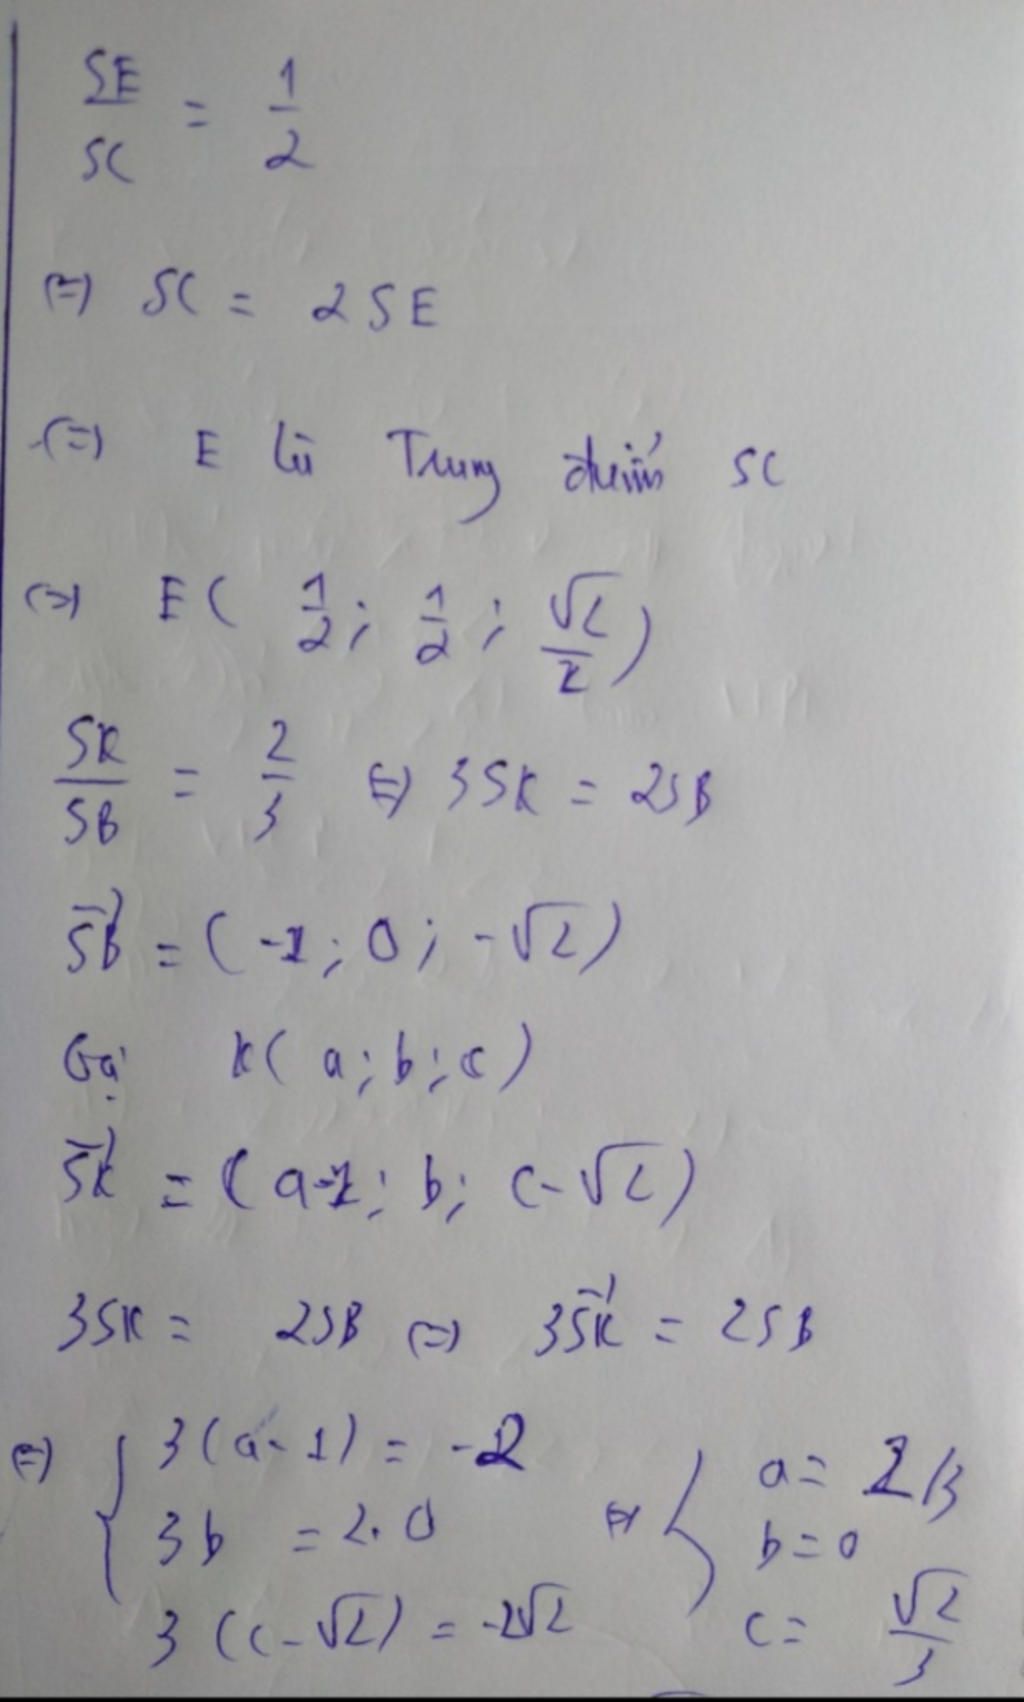 SE/SC = 1/2
(=) SC = 2SE
(=) E là Trung điểm SC
(=) E( 1/2 ; 1/2 ; √2/2 )
SK/SB = 2/3 (=) 3SK = 2SB
→SB = (-1 ; 0 ; -√2)
Gọi K( a ; b ; c )
→SK = ( a-1 ; b ; c-√2 )
3SK = 2SB (=) 3→SK = 2SB
(=) { 3(a-1) = -2 (=) { a = 1/3
3b = 2.0 b = 0
3(c-√2) = -2√2 c = √2/3